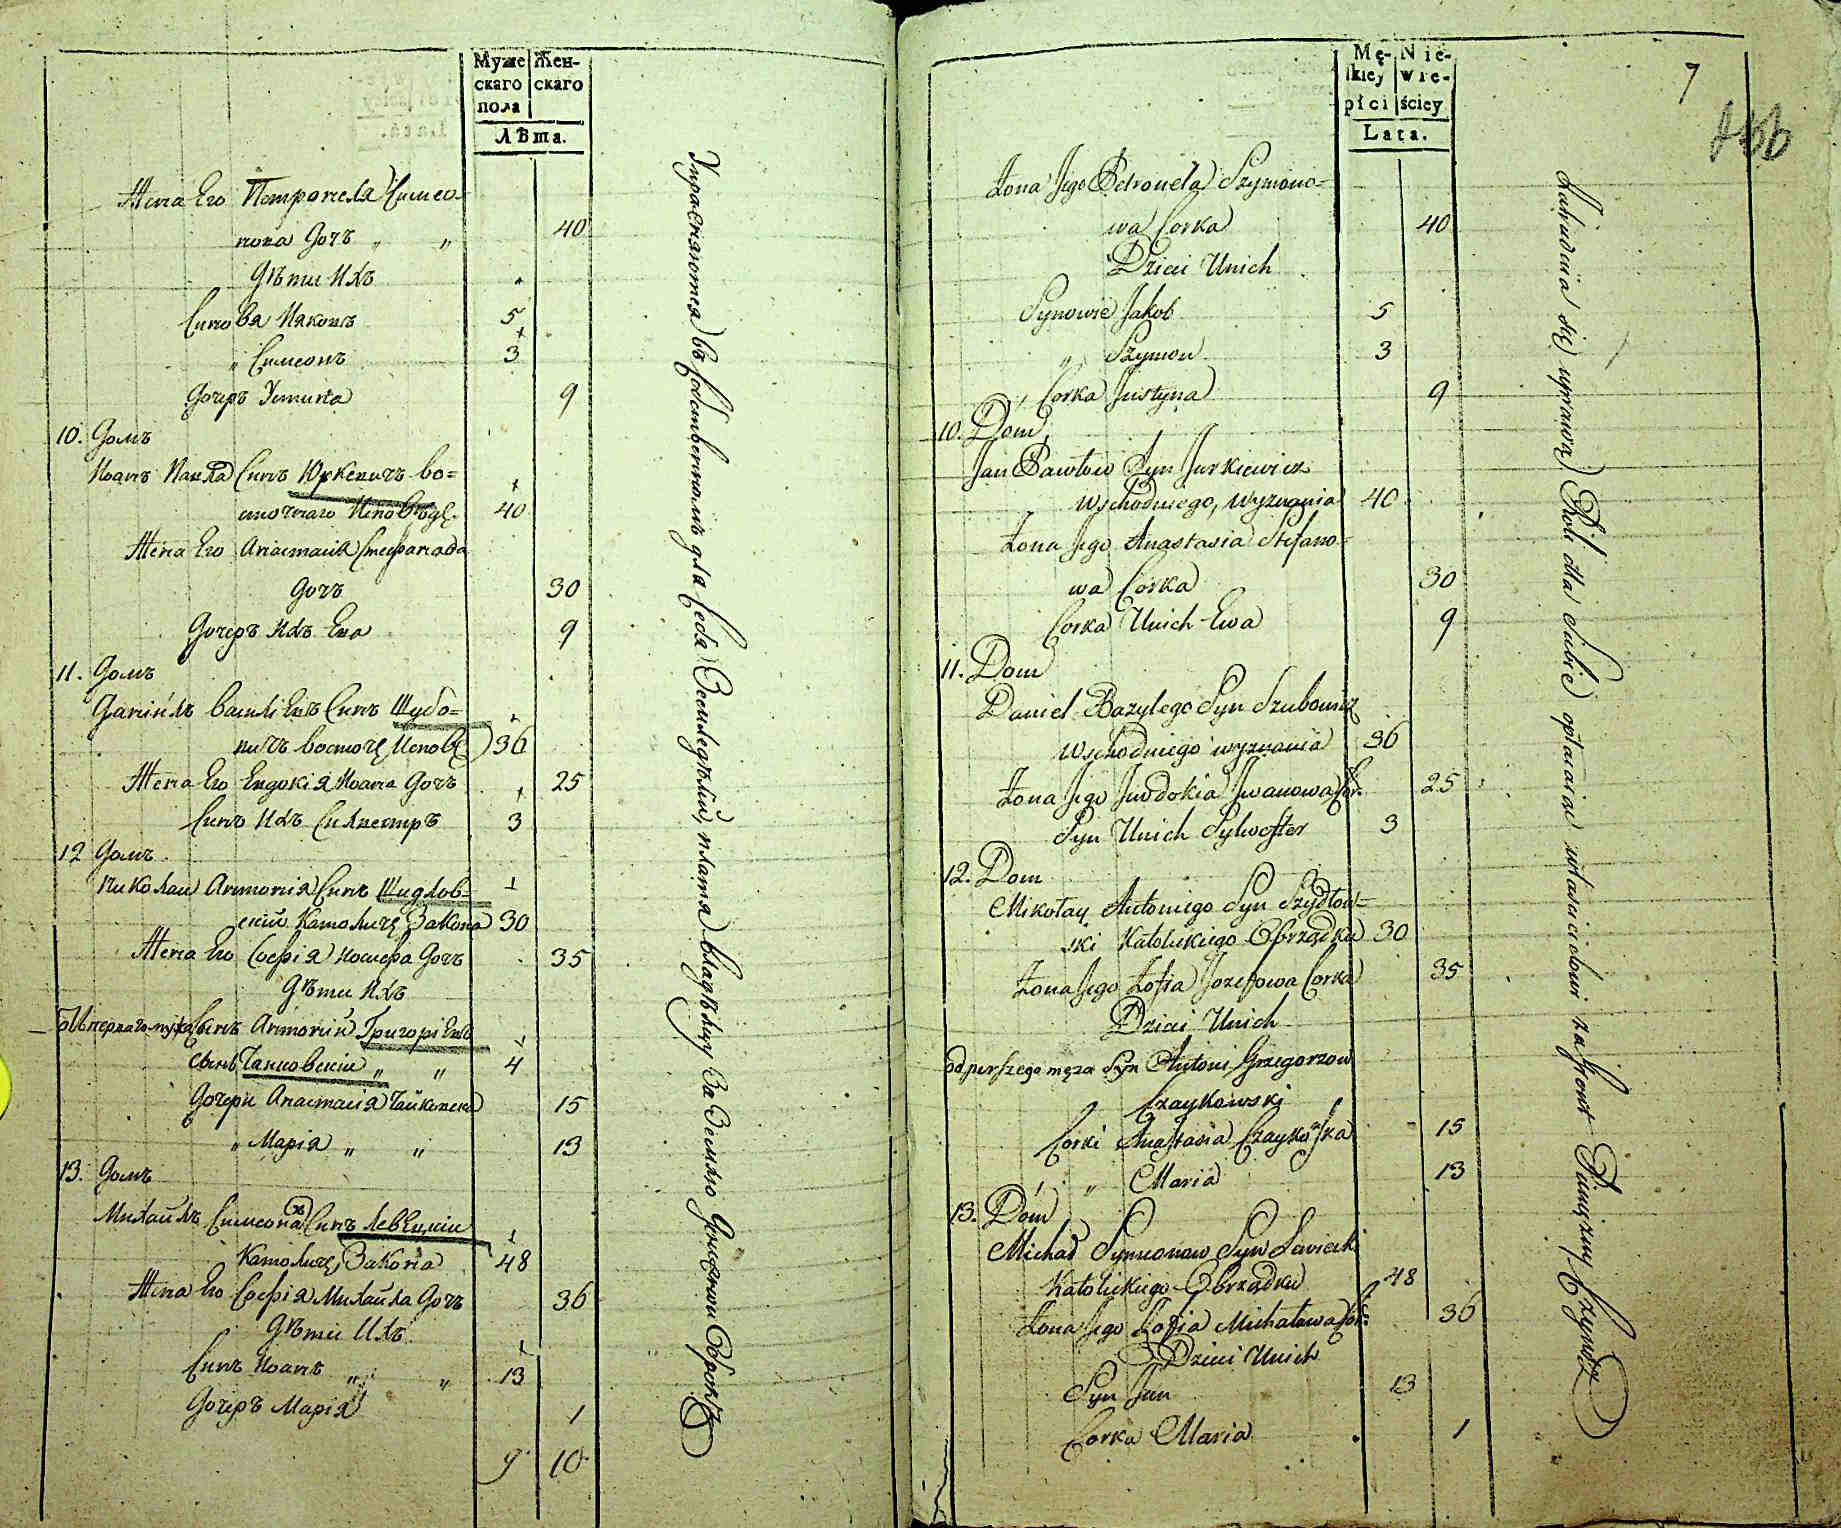 Муже Жен-
скаго скаго
пола
Лѣта.
Жена Его Петронеля Симео-
нова Дочъ „ „ 40
Дѣти Ихъ
Синовя Яковъ 5
„ Симеонъ 3
Дочеръ Устина 9
10. Домъ
Иоанъ Павла Синъ Юркевичъ во-
сточнаго Исповѣд. 40
Жена Его Анастасія Стефанова
Дочъ 30
Дочеръ Ихъ Ева 9
11. Домъ
Даніилъ Василіевъ Синъ Шубо-
вичъ восточ Исповѣ 36
Жена Его Евдокія Иоана Дочъ 25
Синъ Ихъ Силвестръ 3
12 Домъ
Николай Антонія Синъ Шидлов-
скій Католиц Закона 30
Жена Его Софія Иосифа Дочъ 35
Дѣти Ихъ
Отъ перваго мужа Синъ Антоній Григоріевъ
сынъ Чайковскій „ „ 4
Дочери Анастасія Чайковска 15
„ Марія „ „ 13
13. Домъ
Михайлъ Симеона Синъ Левецкій
Католиц Закона 48
Жена Его Софія Михайла Дочъ 36
Дѣти Ихъ
Синъ Иоанъ „ „ 13
Дочеръ Марія 1
9 10
Упражняются въ собственномъ для себя Земледѣлій, платя владѣлцу За Землю Денежный Оброкъ
Mę- Nie-
skiey wie-
płci ściey
Lata.
7
Żona Jego Petronela Szymono-
wa Corka 40
Dzieci Unich
Synowie Jakob 5
„ Szymon 3
„ Corka Justyna 9
10. Dom
Jan Pawłow Syn Jurkiewicz
Wschodniego, Wyznania 40
Żona Jego Anastasia Stefano-
wa Corka 30
Corka Unich Ewa 9
11. Dom
Daniel Bazylego Syn Szubowicz
Wschodniego wyznania 36
Żona Jego Juwdokia Jwanowa Cor. 25
Syn Unich Sylwester 3
12. Dom
Mikołay Antoniego Syn Szydłow-
ski Katolickiego Obrządku 30
Żona Jego Zofia Jozefowa Corka 35
Dzieci Unich
od pierszego męża Syn Antoni Grzegorzow
Czaykowski
Corki Anastasia Czaykowska 15
„ „ Maria 13
13. Dom
Michał Symeonow Syn Lewiecki
Katolickiego Obrządku 48
Żona Jego Zofia Michałowa Cor: 36
Dzieci Unich
Syn Jan 13
Corka Maria 1
się uprawą Roli dla siebie opłacaiąc właścicielowi za Grunt Pieniężny Czynsz